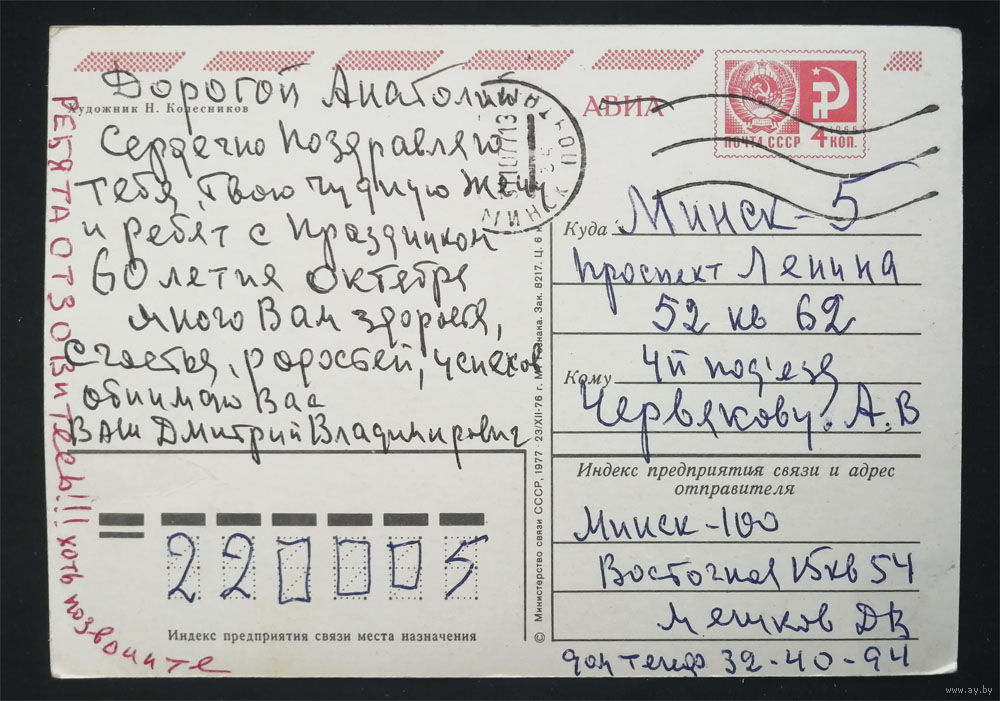 Художник Н. Колесников
АВИА
ПОЧТА СССР
1966
4 КОП.
МИНСК ПОЧТАМТ
Дорогой Анатолий
Сердечно Поздравляю
тебя, твою чудную жену
и ребят с праздником
60 летия октября
много Вам здоровья,
счастья, радостей, успехов
обнимаю Вас
Ваш Дмитрий Владимирович
РЕБЯТА ОТЗОВИТЕСЬ!!! хоть позвоните
Куда Минск-5
проспект Ленина
52 кв 62
4й под'езд
Кому Червякову. А.В
Индекс предприятия связи и адрес
отправителя
Минск-100
Восточная 15кв 54
Мешков ДВ
дом телеф 32-40-94
220005
Индекс предприятия связи места назначения
© Министерство связи СССР, 1977 · 23/XII-76 г. МТ Гознака. Зак. 8217. Ц. 6 к
www.ay.by